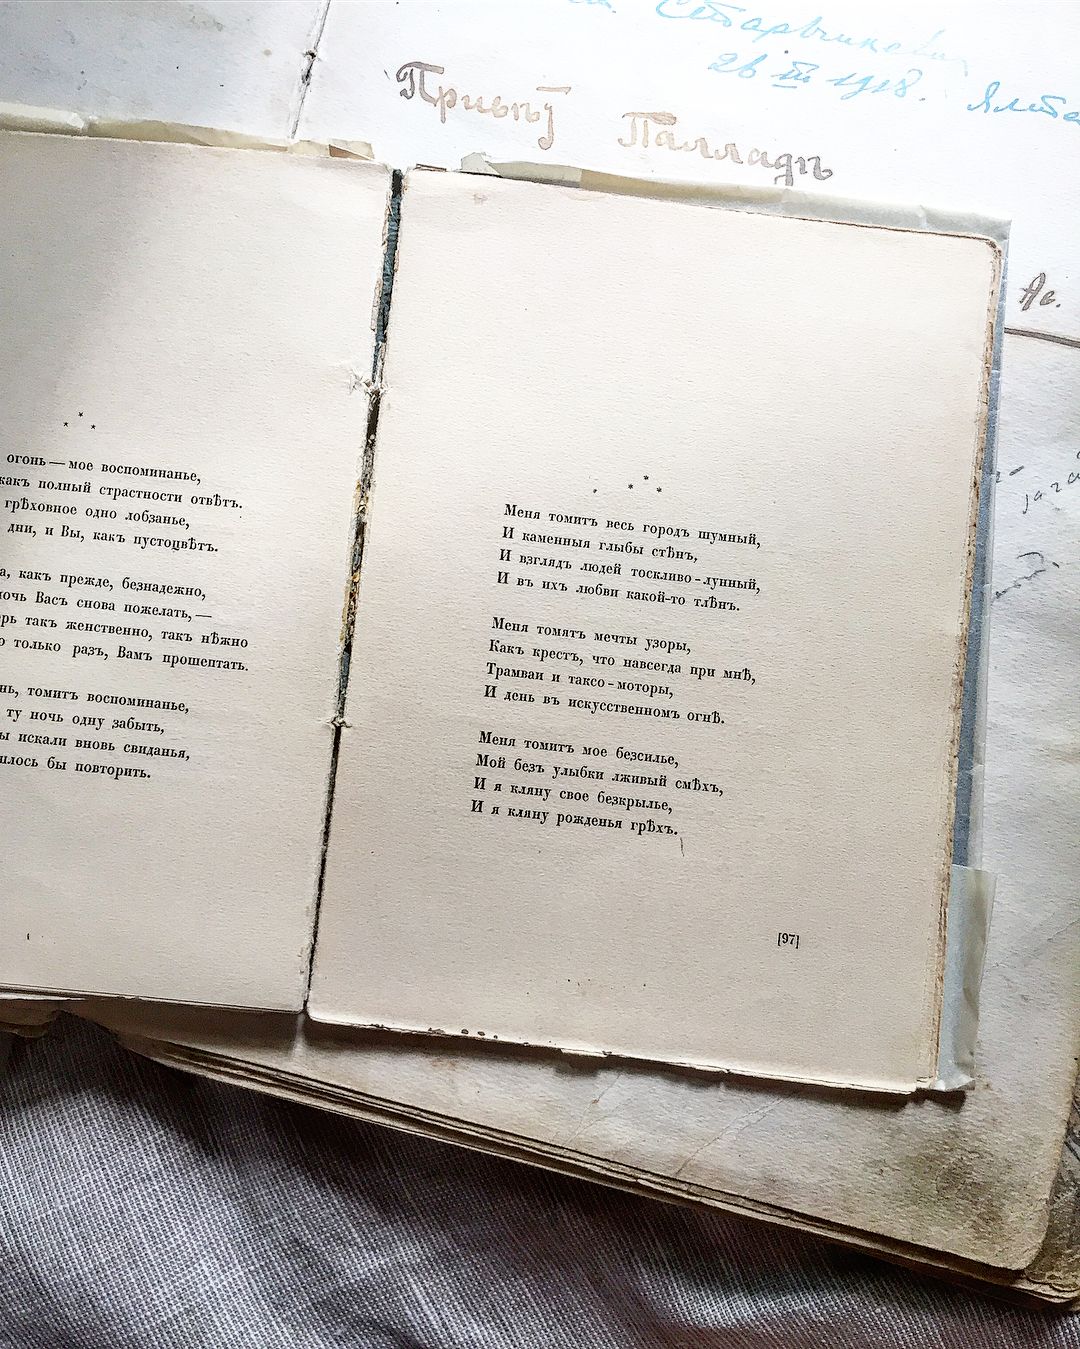 26 III 1918. Ялта
Палладъ
огонь — мое воспоминанье,
какъ полный страстности отвѣтъ.
грѣховное одно лобзанье,
дни, и Вы, какъ пустоцвѣтъ.
какъ прежде, безнадежно,
ночь Васъ снова пожелать, —
такъ женственно, такъ нѣжно
только разъ, Вамъ прошептать.
томитъ воспоминанье,
ту ночь одну забыть,
искали вновь свиданья,
бы повторить.
Меня томитъ весь городъ шумный,
И каменныя глыбы стѣнъ,
И взглядъ людей тоскливо-лунный,
И въ ихъ любви какой-то тлѣнъ.
Меня томятъ мечты узоры,
Какъ крестъ, что навсегда при мнѣ,
Трамваи и таксо-моторы,
И день въ искусственномъ огнѣ.
Меня томитъ мое безсилье,
Мой безъ улыбки лживый смѣхъ,
И я кляну свое безкрылье,
И я кляну рожденья грѣхъ.
[97]